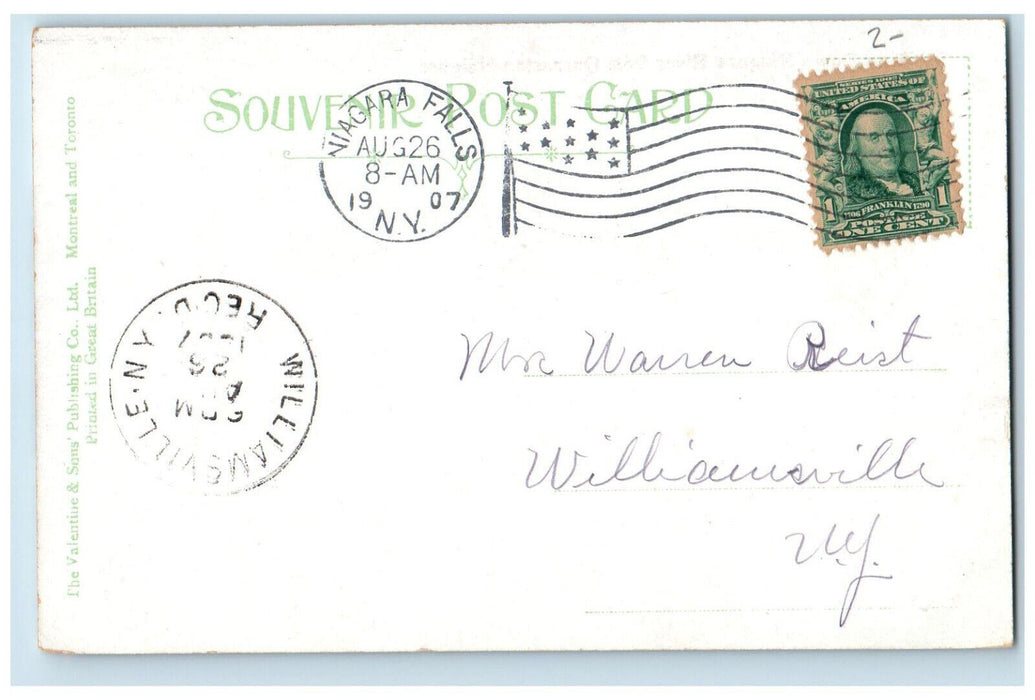 2-
SOUVENIR POST CARD
NIAGARA FALLS
AUG 26
8-AM
19 07
N.Y.
SERIES 1902
UNITED STATES OF
AMERICA
1 1
1706 FRANKLIN 1790
POSTAGE
ONE CENT
The Valentine & Sons' Publishing Co., Ltd. Montreal and Toronto
Printed in Great Britain
WILLIAMSVILLE. N.Y.
REC'D.
2 PM
26
1907
Mrs Warren Reist
Williamsville
N.Y.